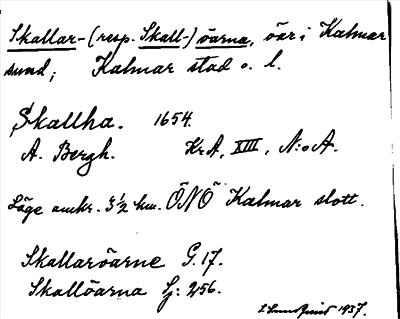 Skallar- (resp. Skall-) öarna, öar i Kalmar
sund; Kalmar stad o. l.
Skallha. 1654.
A. Bergh. KrA, XIII, N:o A.
Läge omkr. 3 1/2 km. ÖNÖ Kalmar slott.
Skallaröarne G. 17.
Skallöarna Sj: 256.
I. Lundquist 1937.